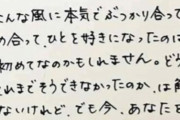 んな風に本気でぶつかり合って
め合って、ひとを好きになったのは
初めてなのかもしれません。どう
れまでそうできなかったのか、は
ないけれど、でも今、あなたを